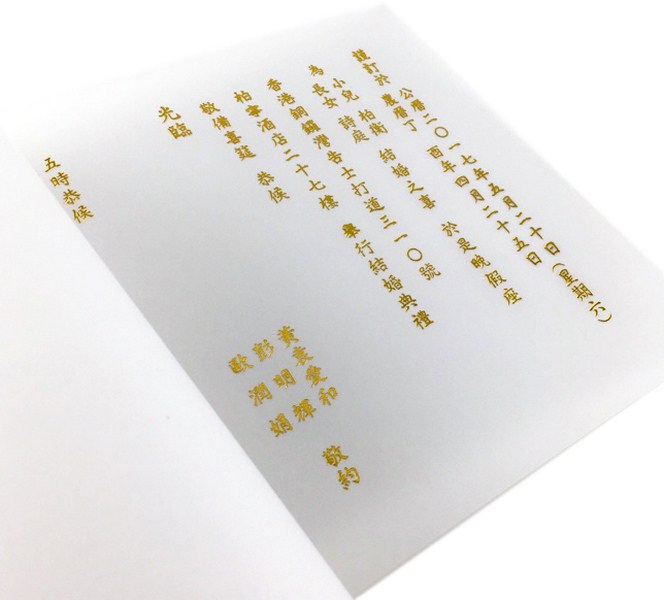 謹訂於
公曆二〇一七年五月二十日(星期六)
農曆丁酉年四月二十五日
為
小兒 柏衛
長女 詩庭
結婚之喜 於是晚假座
香港銅鑼灣告士打道三一〇號
柏寧酒店二十七樓 舉行結婚典禮
敬備喜筵 恭候
光臨
黃袁愛和
彭明輝
歐潤娟
敬約
五時恭候